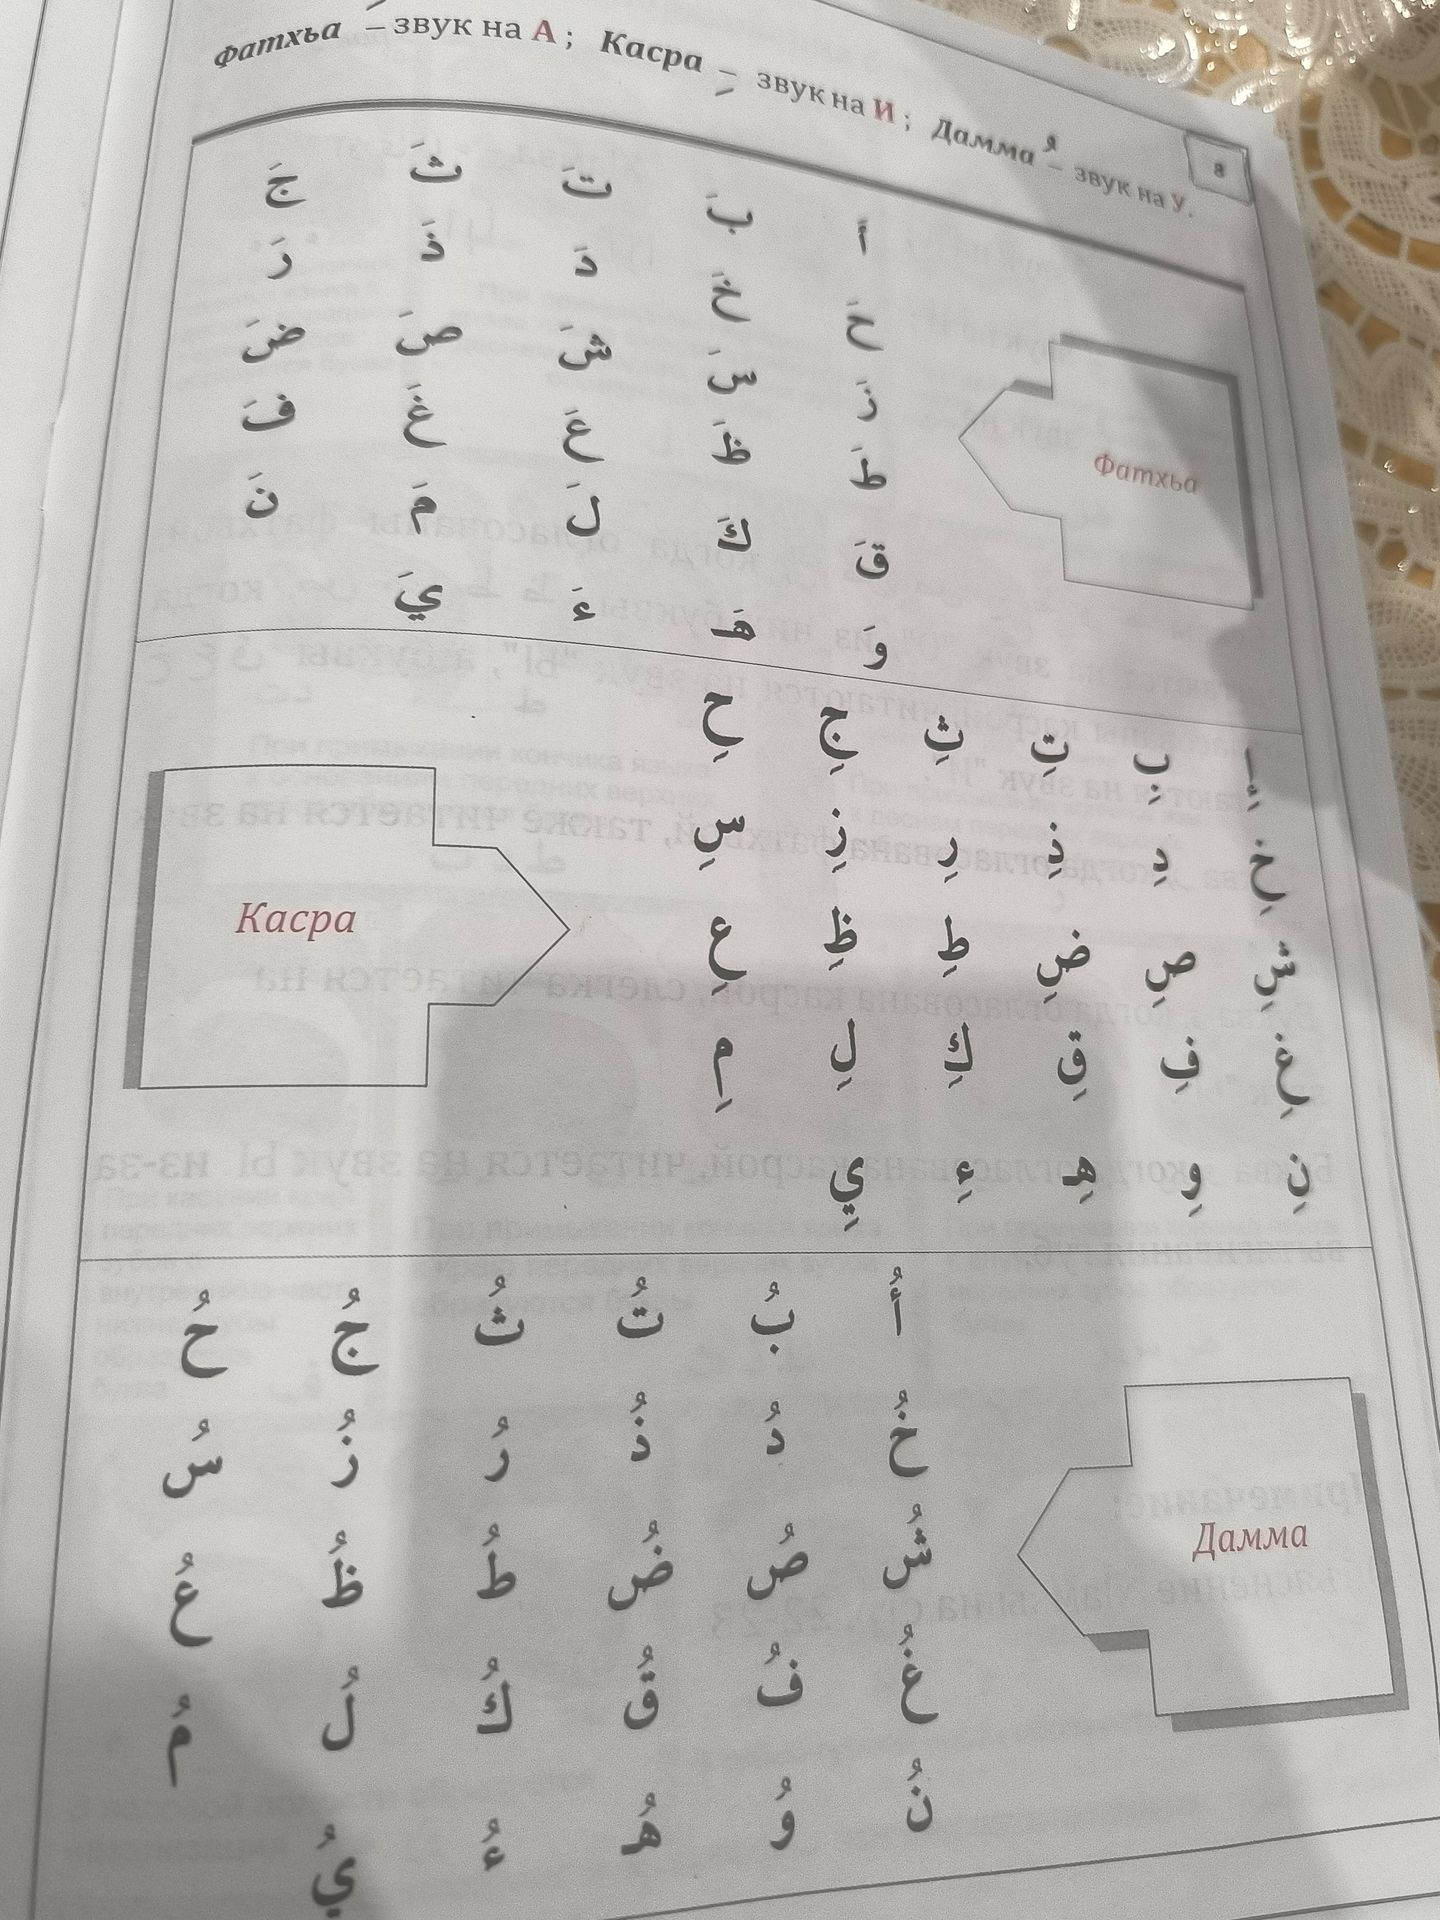 Фатхьа َ – звук на А ; Касра ِ – звук на И ; Дамма ُ – звук на У.
8
أَ بَ تَ ثَ جَ
حَ خَ دَ ذَ رَ
زَ سَ شَ صَ ضَ
طَ ظَ عَ غَ فَ
قَ كَ لَ مَ نَ
وَ هَـ ءَ يَ
Фатхьа
إِ بِ تِ ثِ جِ حِ
خِ دِ ذِ رِ زِ سِ
شِ صِ ضِ طِ ظِ عِ
غِ فِ قِ كِ لِ مِ
نِ وِ هِـ ءِ يِ
Касра
أُ بُ تُ ثُ جُ حُ
خُ دُ ذُ رُ زُ سُ
شُ صُ ضُ طُ ظُ عُ
غُ فُ قُ كُ لُ مُ
نُ وُ هُـ ءُ يُ
Дамма